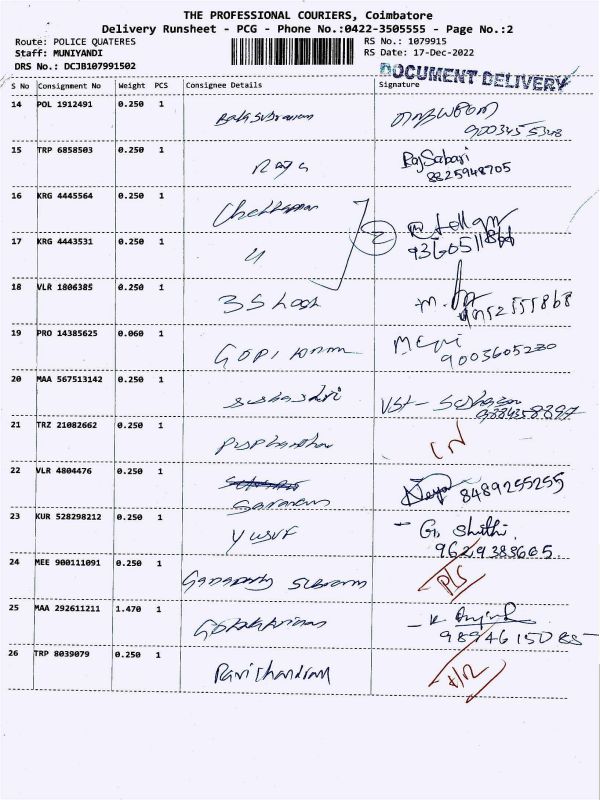 THE PROFESSIONAL COURIERS, Coimbatore
Delivery Runsheet - PCG - Phone No.:0422-3505555 - Page No.:2
Route: POLICE QUATERES RS No.: 1079915
Staff: MUNIYANDI RS Date: 17-Dec-2022
DRS No.: DCJB107991502
DOCUMENT DELIVERY
S No Consignment No Weight PCS Consignee Details Signature
14 POL 1912491 0.250 1 Balasubraniam
9003455348
15 TRP 6858503 0.250 1 Raja RajSabari
8825948705
16 KRG 4445564 0.250 1 Chettappan
2
17 KRG 4443531 0.250 1 4
18 VLR 1806385 0.250 1
19 PRO 14385625 0.060 1 GOPI
9003605230
20 MAA 567513142 0.250 1
21 TRZ 21082662 0.250 1 IN
22 VLR 4804476 0.250 1 8489255255
Saravanan
23 KUR 528298212 0.250 1 YUSUF - G. Shithi.
9629383665
24 MEE 900111091 0.250 1 Ganapathy PLS
25 MAA 292611211 1.470 1
9894615085
26 TRP 8039079 0.250 1 Ravichandran